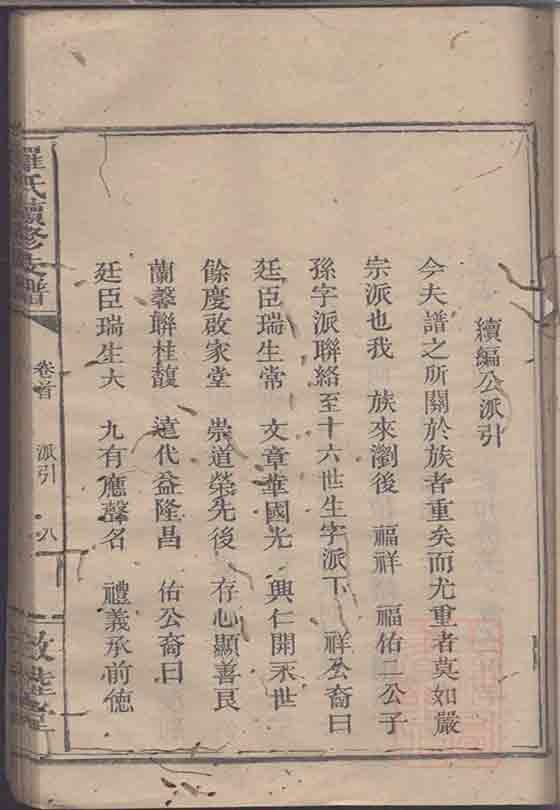 續編公派引
今夫譜之所關於族者重矣而尤重者莫如嚴
宗派也我 族來瀏後 福祥 福佑二公子
孫字派聯絡至十六世生字派下 祥公裔曰
廷臣瑞生常 文章華國光 興仁開永世
餘慶啟家堂 崇道榮先後 存心顯善良
蘭馨聯桂馥 遠代益隆昌 佑公裔曰
廷臣瑞生大 九有應聲名 禮義承前德
羅氏續修支譜
卷首
派引
八